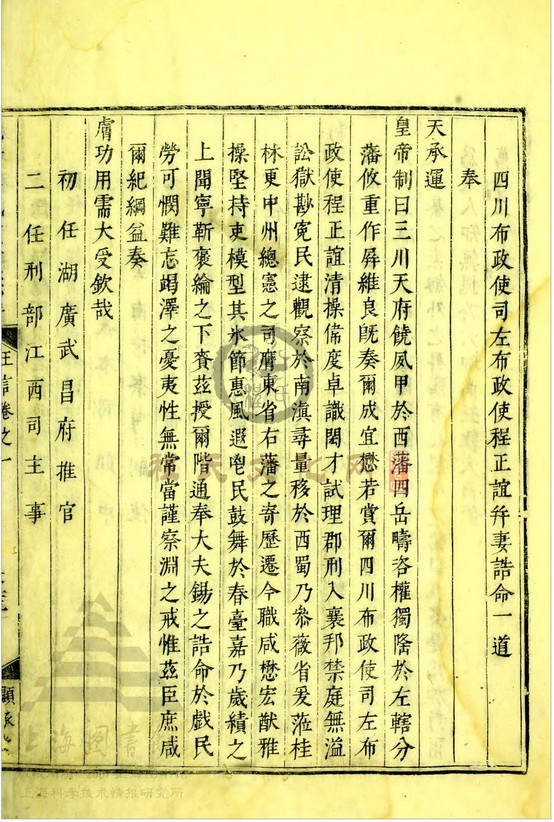 四川布政使司左布政使程正誼并妻誥命一道
奉
天承運
皇帝制曰三川天府饒夙甲於西藩四岳疇咨權獨隆於左轄分
藩攸重作屏維良旣奏爾成宜懋若賞爾四川布政使司左布
政使程正誼清操偉度卓識閎才試理郡刑入襄邦禁庭無溢
訟獄尠寃民逮觀察於南滇尋量移於西蜀乃叅薇省爰蒞桂
林更中州總憲之司膺東省右藩之寄歷遷今職咸懋宏猷雅
操堅持吏模型其氷節惠風遐鬯民鼓舞於春臺嘉乃歲績之
上聞寧靳褒綸之下賚茲授爾階通奉大夫錫之誥命於戲民
勞可憫難忘竭澤之憂夷性無常當謹察淵之戒惟茲臣庶咸
爾紀綱益奏
膚功用需大受欽哉
初任湖廣武昌府推官
二任刑部江西司主事
卷之一